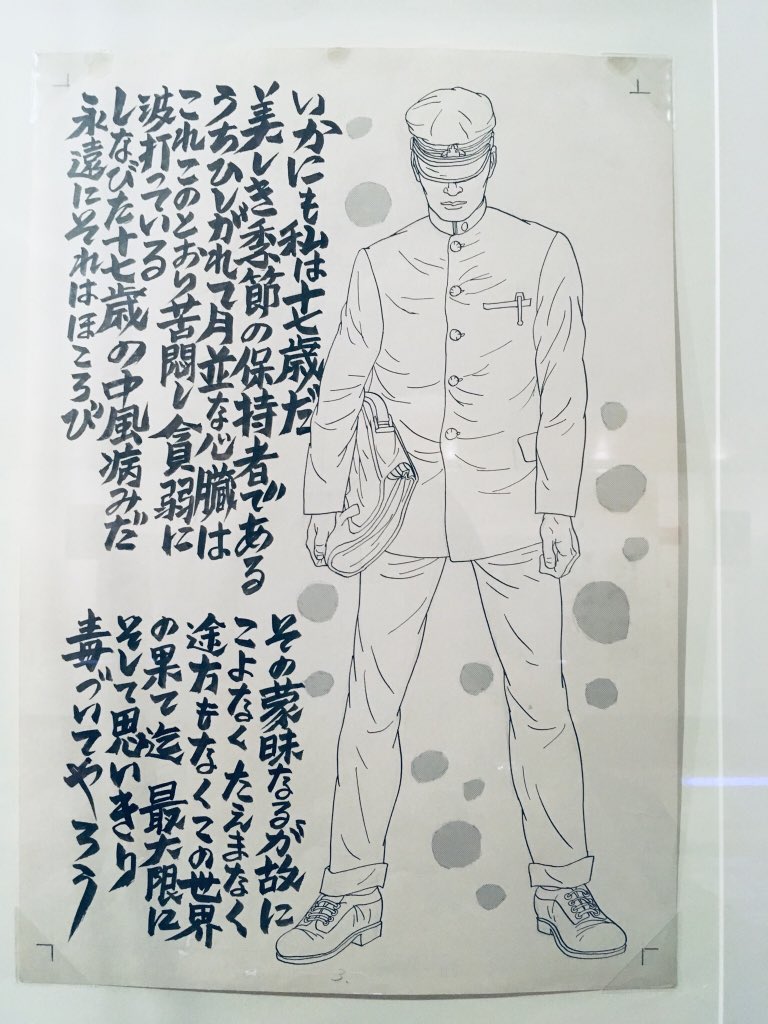 いかにも私は十七歳だ
美しき季節の保持者である
うちひしがれて月並な心臓は
これこのとおり苦悶し貧弱に
波打っている
しなびた十七歳の中風病みだ
永遠にそれはほころび
その蒙昧なるが故に
こよなくたえまなく
途方もなくこの世界
の果て迄 最大限に
そして思いきり
毒づいてやろう
3.